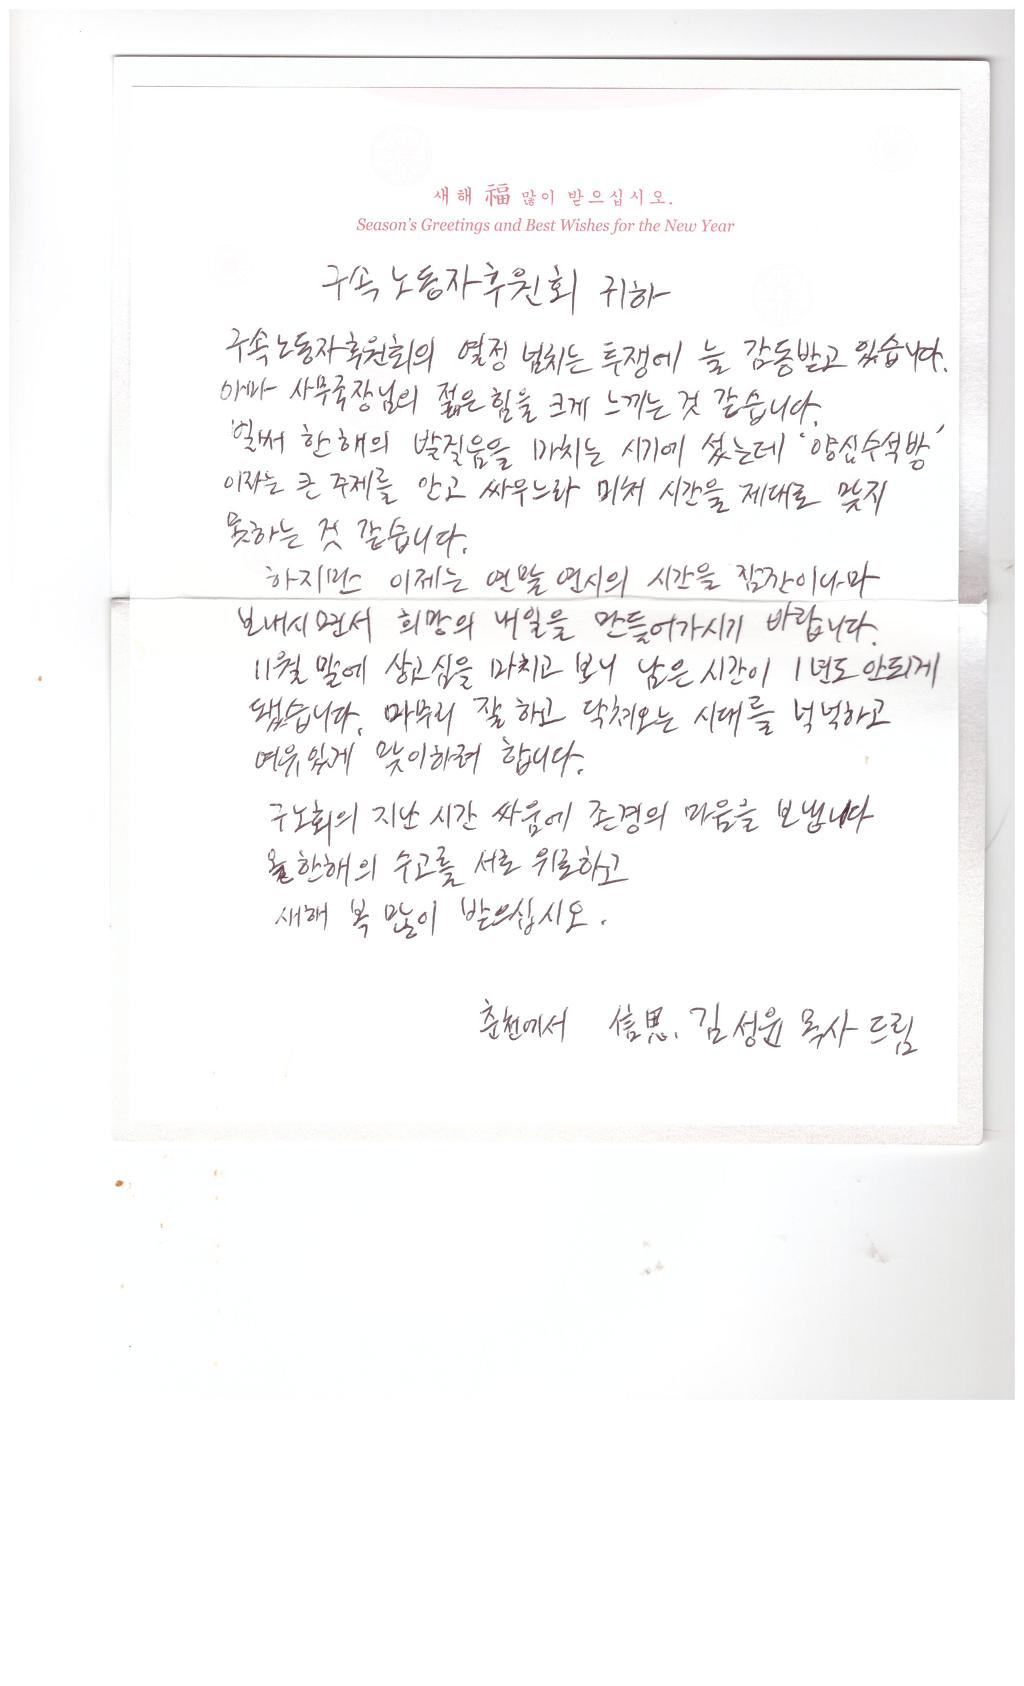 새해 福 많이 받으십시오.
Season's Greetings and Best Wishes for the New Year
구속노동자후원회 귀하
구속노동자후원회의 열정 넘치는 투쟁에 늘 감동받고 있습니다.
아마 사무국장님의 젊은 힘을 크게 느끼는 것 같습니다.
벌써 한 해의 발걸음을 마치는 시기에 섰는데 '양심수석방'
이라는 큰 주제를 안고 싸우느라 미처 시간을 제대로 맞지
못하는 것 같습니다.
하지만 이제는 연말 연시의 시간을 잠깐이나마
보내시면서 희망의 내일을 만들어가시기 바랍니다.
11월 말에 상고심을 마치고 보니 남은 시간이 1년도 안되게
됐습니다. 마무리 잘 하고 닥쳐오는 시대를 넉넉하고
여유있게 맞이하려 합니다.
구노회의 지난 시간 싸움에 존경의 마음을 보냅니다
올 한해의 수고를 서로 위로하고
새해 복 많이 받으십시오.
춘천에서 信思. 김성윤 목사 드림